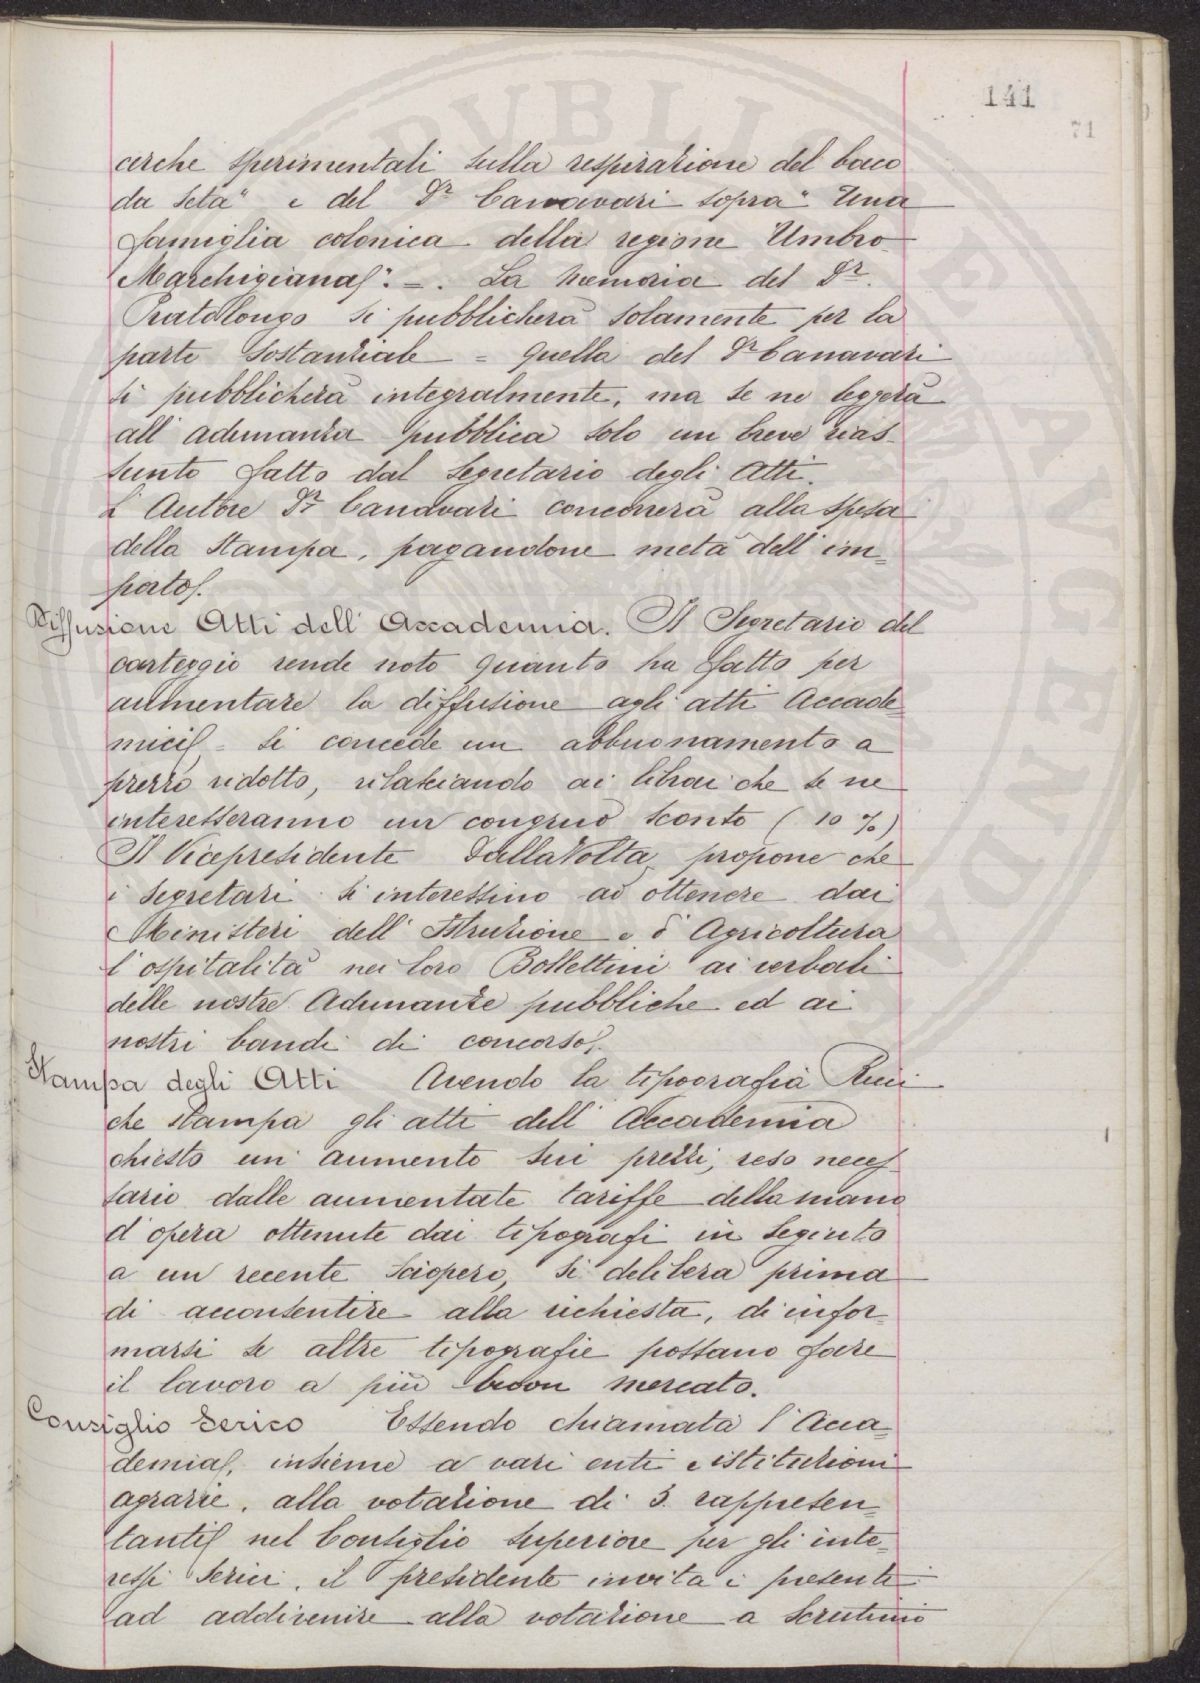 141
71
cerche sperimentali sulla respirazione del baco
da seta" e del Dr Canavari sopra "Una
famiglia colonica della regione Umbro
Marchigiana". =. La memoria del Dr.
Pratolongo si pubblicherà solamente per la
parte sostanziale = quella del Dr Canavari
si pubblicherà integralmente, ma se ne leggerà
all'adunanza pubblica solo un breve rias-
sunto fatto dal Segretario degli Atti.
L'Autore Dr Canavari concorrerà alla spesa
della stampa, pagandone metà dell'im=
porto.
Diffusione Atti dell'Accademia. Il Segretario del
carteggio rende noto quanto ha fatto per
aumentare la diffusione agli atti Accade=
mici = si concede un abbuonamento a
prezzo ridotto, rilasciando ai librai che se ne
interesseranno un congruo sconto (10 %)
Il Vicepresidente DallaVolta propone che
i Segretari si interessino ad ottenere dai
Ministeri dell'Istruzione e d'Agricoltura
l'ospitalità nei loro Bollettini ai verbali
delle nostre Adunanze pubbliche ed ai
nostri bandi di concorso.
Stampa degli Atti Avendo la tipografia Ricci
che stampa gli atti dell'Accademia
chiesto un aumento sui prezzi, reso neces-
sario dalle aumentate tariffe della mano
d'opera ottenute dai tipografi in seguito
a un recente sciopero, si delibera prima
di acconsentire alla richiesta, di infor=
marsi se altre tipografie possano fare
il lavoro a più buon mercato.
Consiglio Serico Essendo chiamata l'Acca=
demia, insieme a vari enti e istituzioni
agrarie, alla votazione di 3 rappresen=
tanti nel Consiglio Superiore per gli inte=
ressi serici, il presidente invita i presenti
ad addivenire alla votazione a scrutinio
PVBLICAE AVGENDAE